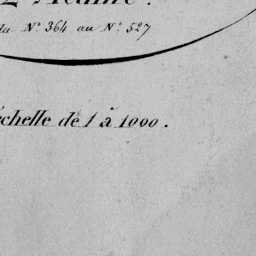 du N.º 364 au N.º 527
échelle de 1 à 1000.